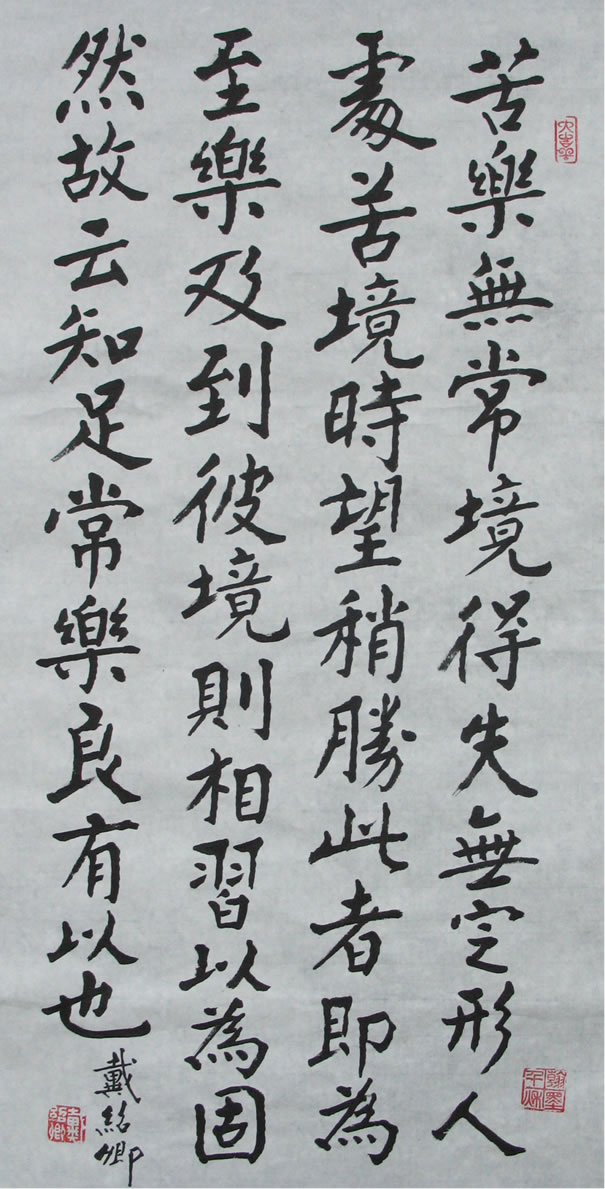 苦樂無常境得失無定形人
處苦境時望稍勝此者即為
至樂及到彼境則相習以為固
然故云知足常樂良有以也
戴紹卿